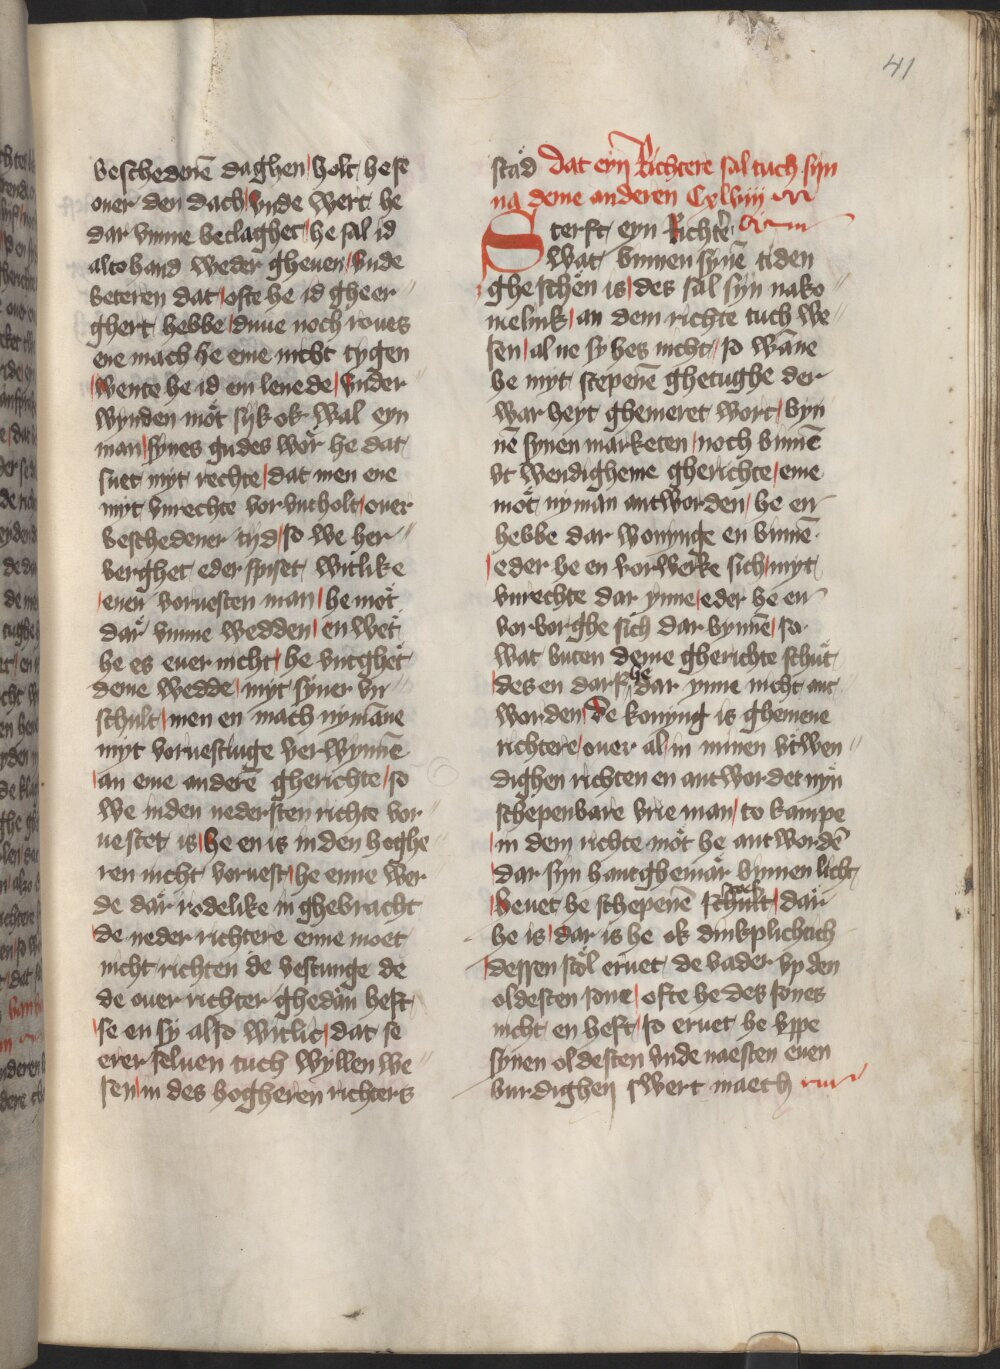 41
beschedenē daghen holt he se
ouer den dach vnde wert he
dar vmme beclaghet he sal id
altohand weder gheuen vnde
beteren dat ofte he id gheer
ghert hebbe duue noch roues
ene mach he eme nicht tygen
wente he id em lenede vnder
wynden mot syk ok wal eyn
man synes gudes wor he dat
suet myt rechte dat men ene
myt vnrechte vor vntholt ouer
beschedener tyd so we her
berghet eder spiset witlike
enen voruesten man he mot
dar vmme wedden en wet
he es euer nicht he vntghet
deme wedde myt syner vn
schult men en mach nymāne
myt voruestinge verwynnē
an eme anderē gherichte so
we inden nedersten richte vor
uestet is he en is in den hoghe
ren nicht voruest he enne wer
de dar rodelike in ghebracht
de neder richtere enne moet
nicht richten de vestunge de
de ouer richter ghedan heft
se en sy also witlic dat se
erer seluen tuch wyllen we
sen in des hogheren richters
stad Dat eyn Richtere sal tuch syn
na deme anderen Cxlviii
Sterft eyn Richter
wat bynnen synē tiden
ghe schen is des sal syn nako
melink an dem richte tuch we
sen al ne sy hes nicht so wāne
he myt scepenē ghetughe der
war heyt ghemeret wort byn
nē synen marketen noch binnē
vt wendigheme gherichte eme
mot nyman antworden he en
hebbe dar wonynge en binnē
eder he en vorwerke sich myt
vnrechte dar ynne eder he en
vor borghe sich dar bynnē so
wat buten deme gherichte schut
des en darf he dar ynne nicht ant
worden De konyng is ghemene
richtere ouer al in minen vtwen
dighen richten en antwordet nyn
schepenbare vrie man to kampe
in dem richte mot he antwordē
dar syn hantghemar bynnen licht
heuet he schepenē schult dar
he is dar is he ok dinkplichtich
dessen stol eruet de vader vp den
oldesten sone ofte he des sones
nicht en heft so eruet he vppe
synen oldesten vnde naesten euen
burdighen swert maech